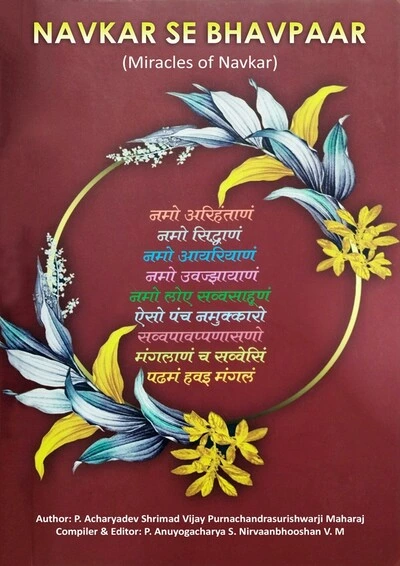 NAVKAR SE BHAVPAAR
(Miracles of Navkar)
नमो अरिहंताणं
नमो सिद्धाणं
नमो आयरियाणं
नमो उवज्झायाणं
नमो लोए सव्वसाहूणं
ऐसो पंच नमुक्कारो
सव्वपावप्पणासणो
मंगलाणं च सव्वेसिं
पढमं हवइ मंगलं
Author: P. Acharyadev Shrimad Vijay Purnachandrasurishwarji Maharaj
Compiler & Editor: P. Anuyogacharya S. Nirvaanbhooshan V. M